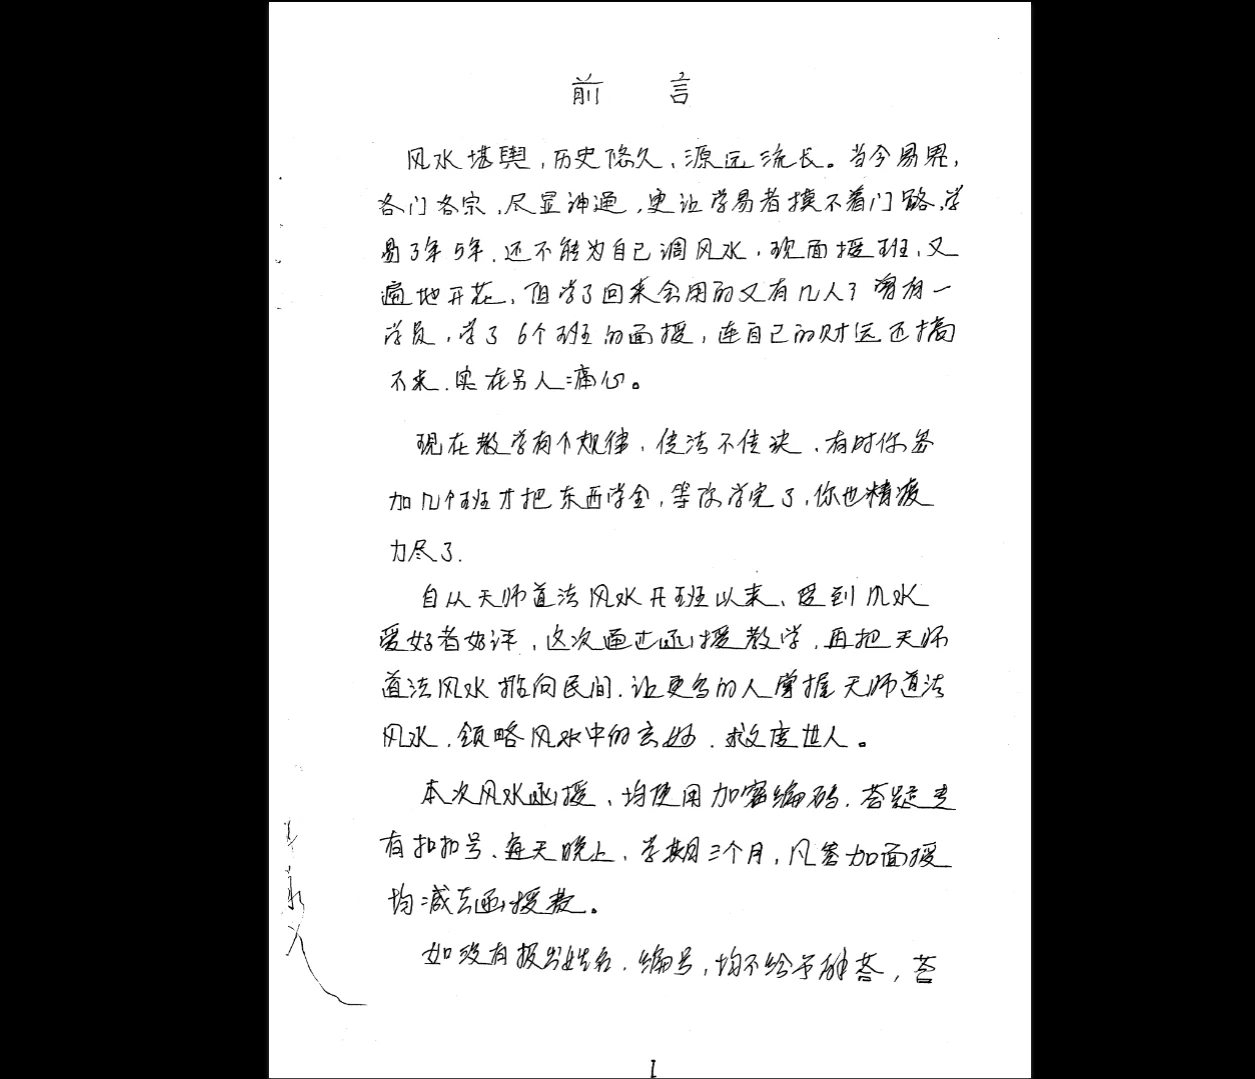 前 言
风水堪舆,历史悠久,源远流长。当今易界,
各门各宗,尽显神通,更让学易者摸不着门路,学
易3年5年,还不能为自己调风水,现面授班,又
遍地开花,但学了回来会用的又有几人?曾有一
学员,学了6个班的面授,连自己的财运还搞
不来,实在另人痛心。
现在教学有个规律,传法不传诀,有时你参
加几个班才把东西学全,等你学完了,你也精疲
力尽了.
自从天师道法风水开班以来、受到风水
爱好者好评,这次通过函授教学,再把天师
道法风水推向民间.让更多的人掌握天师道法
风水,领略风水中的玄妙.救度世人。
本次风水函授,均使用加密编码.答疑专
有扣扣号、每天晚上,学期三个月,凡参加面授
均减去函授费。
如没有报出姓名.编号,均不给予解答,答
1